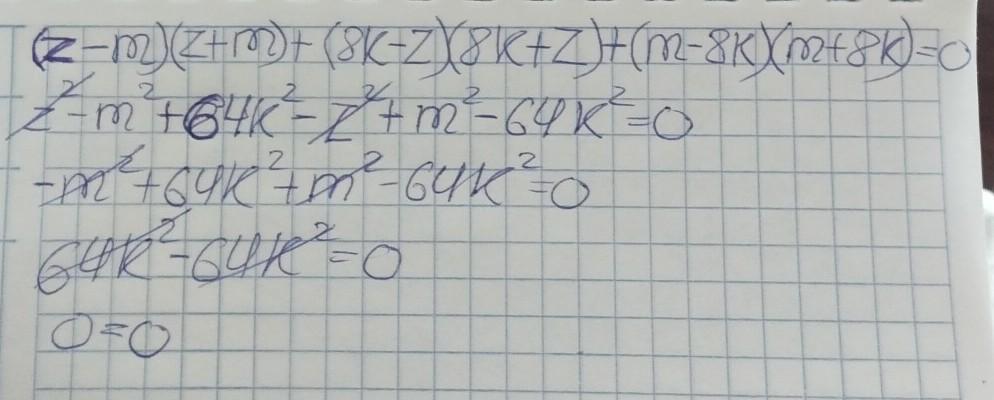 (z-m)(z+m)+(8k-z)(8k+z)+(m-8k)(m+8k)=0
z²-m²+64k²-z²+m²-64k²=0
-m²+64k²+m²-64k²=0
64k²-64k²=0
0=0